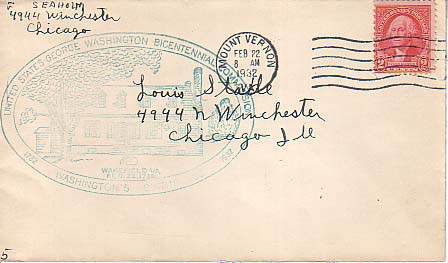 SEAHOLM
4944 Winchester
Chicago
UNITED STATES GEORGE WASHINGTON BICENTENNIAL COMMISSION
1732
1932
WAKEFIELD, VA.
FEB. 22, 1732
WASHINGTON'S
MOUNT VERNON
FEB 22
8 AM
1932
2
2
Louis Stade
4944 N Winchester
Chicago Ill
5